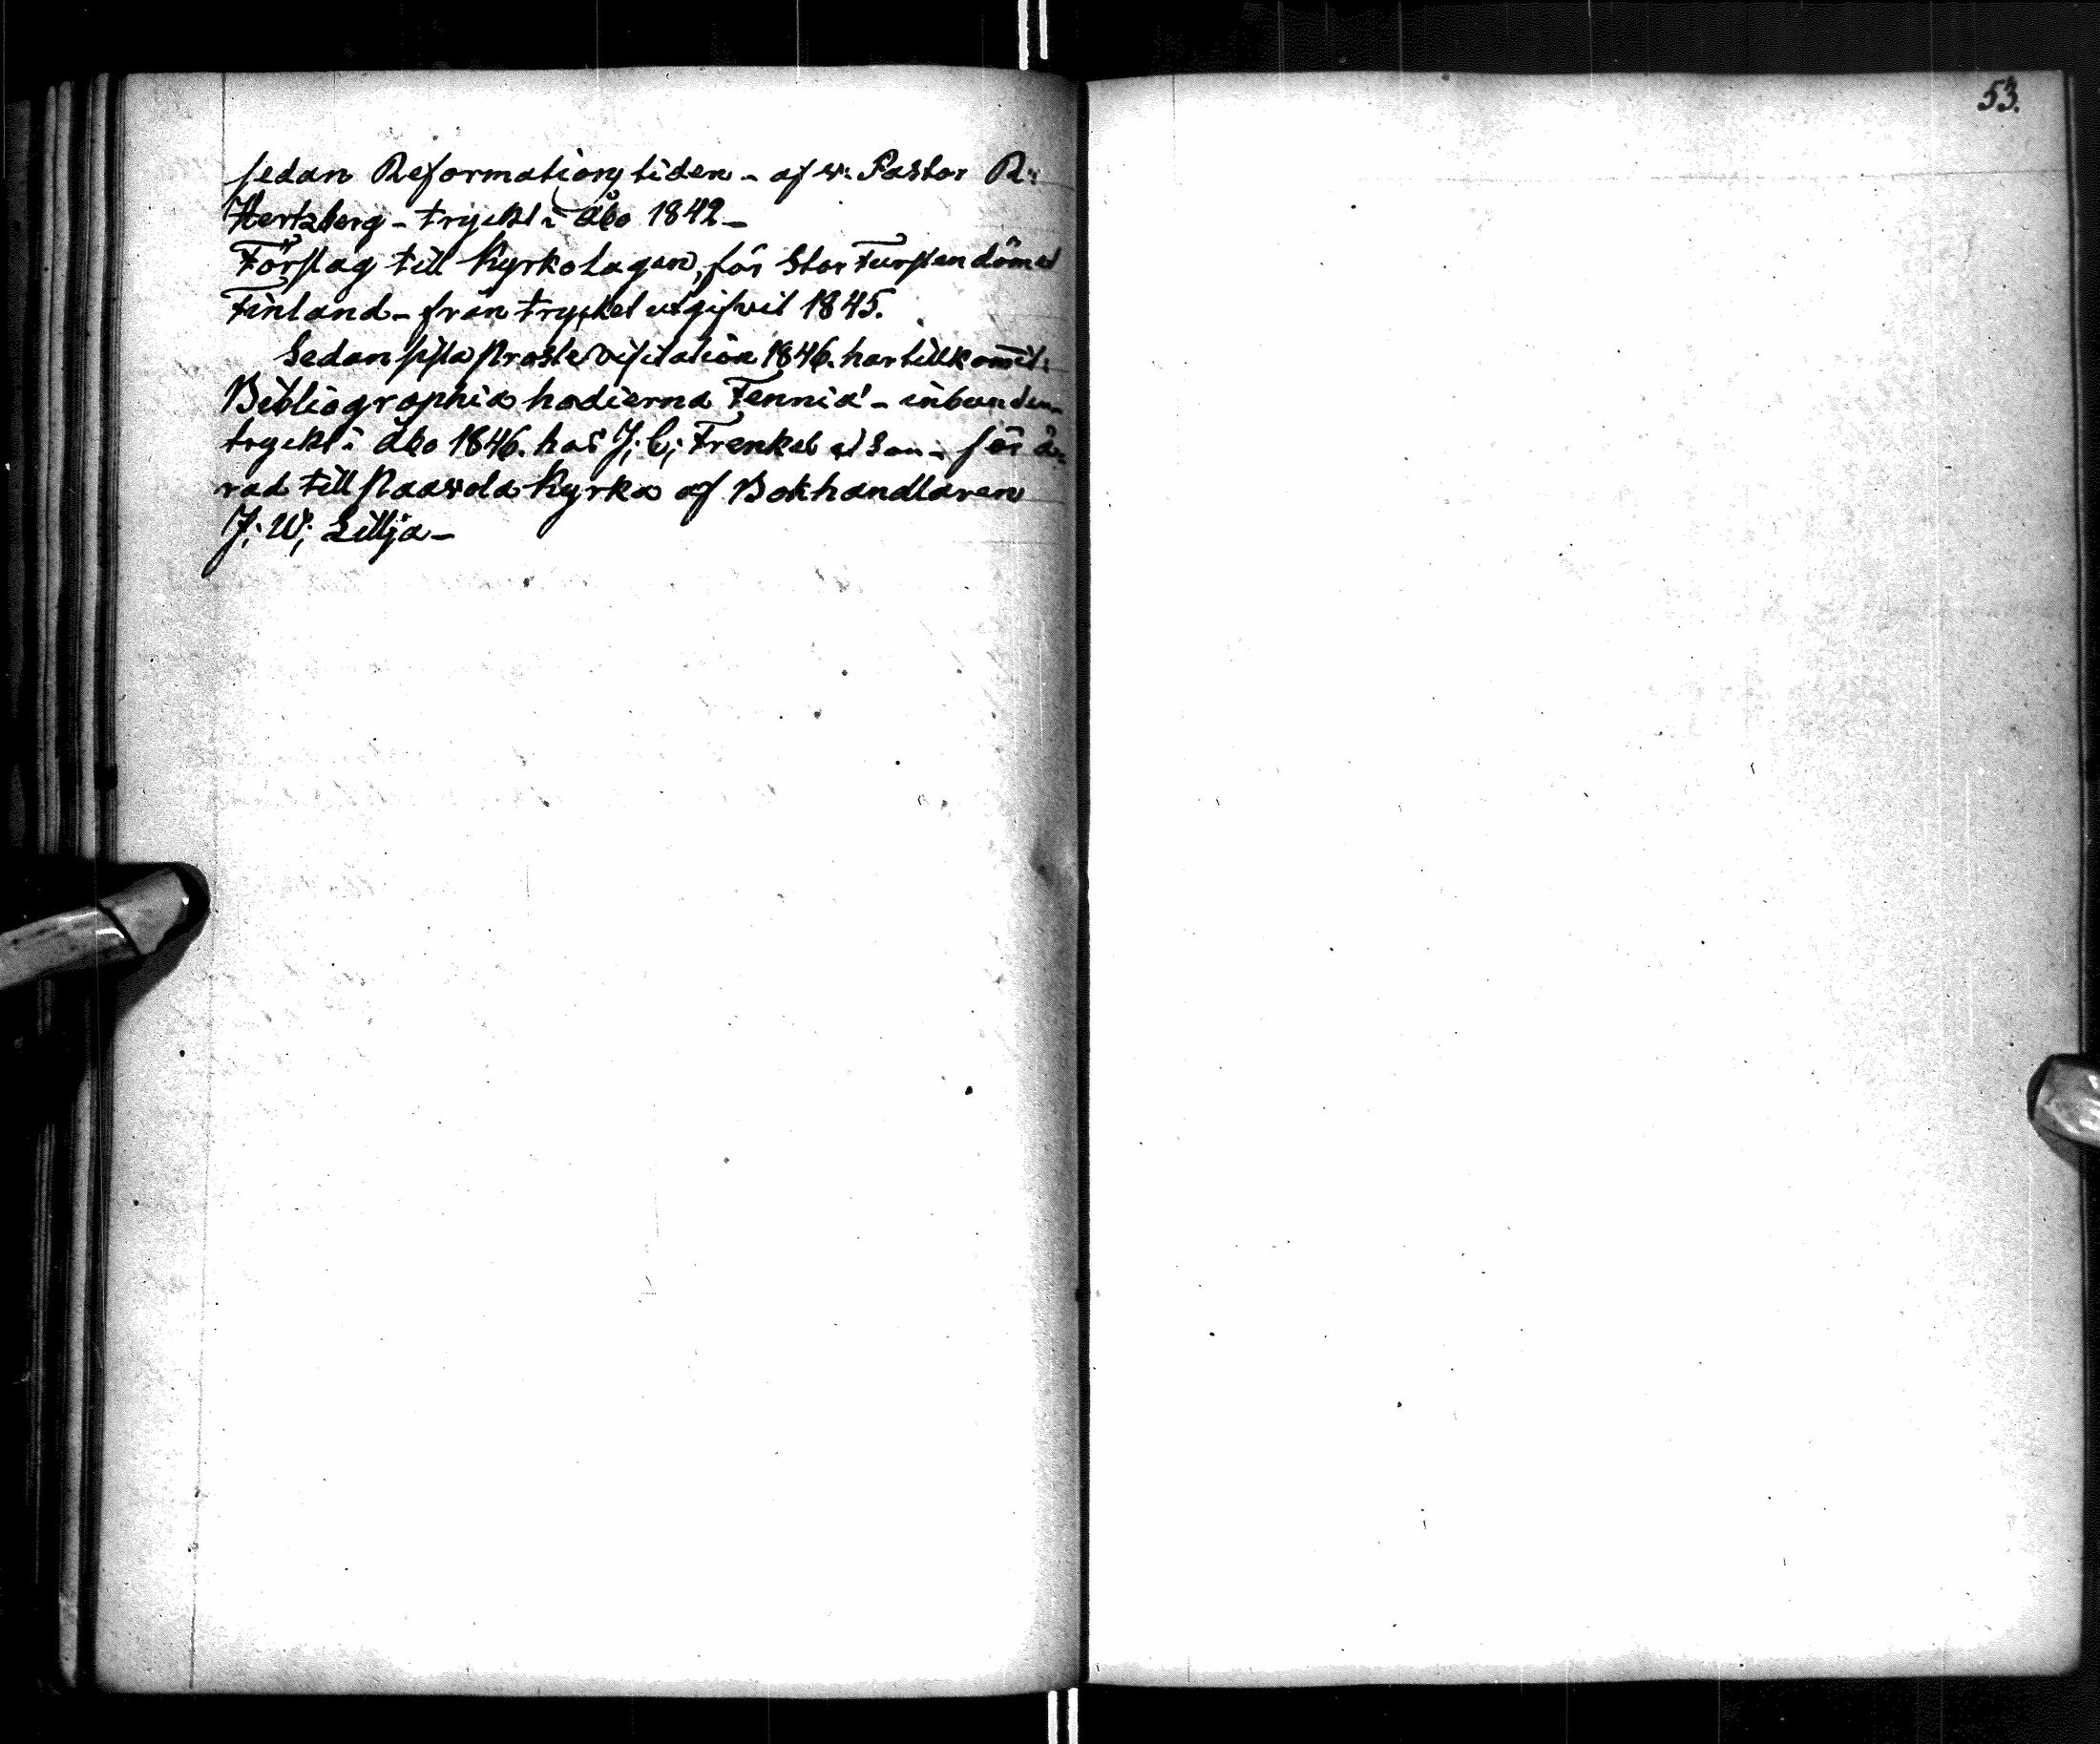 sedan Reformations tiden - af v: Pastor R:
Hertzberg - tryckt i Åbo 1842 -
Förslag till Kyrkolagen, för StorFurstendömet
Finland - från trycket utgifvit 1845.
Sedan sista ProsteVisitation 1846. har tillkommit:
Bibliographia hodierna Fennia - inbunden -
tryckt i Åbo 1846. hos J; C; Frenkel et Son - för ä-
rad till Paavola Kyrka af Bokhandlaren
J; W; Lillja -
53.